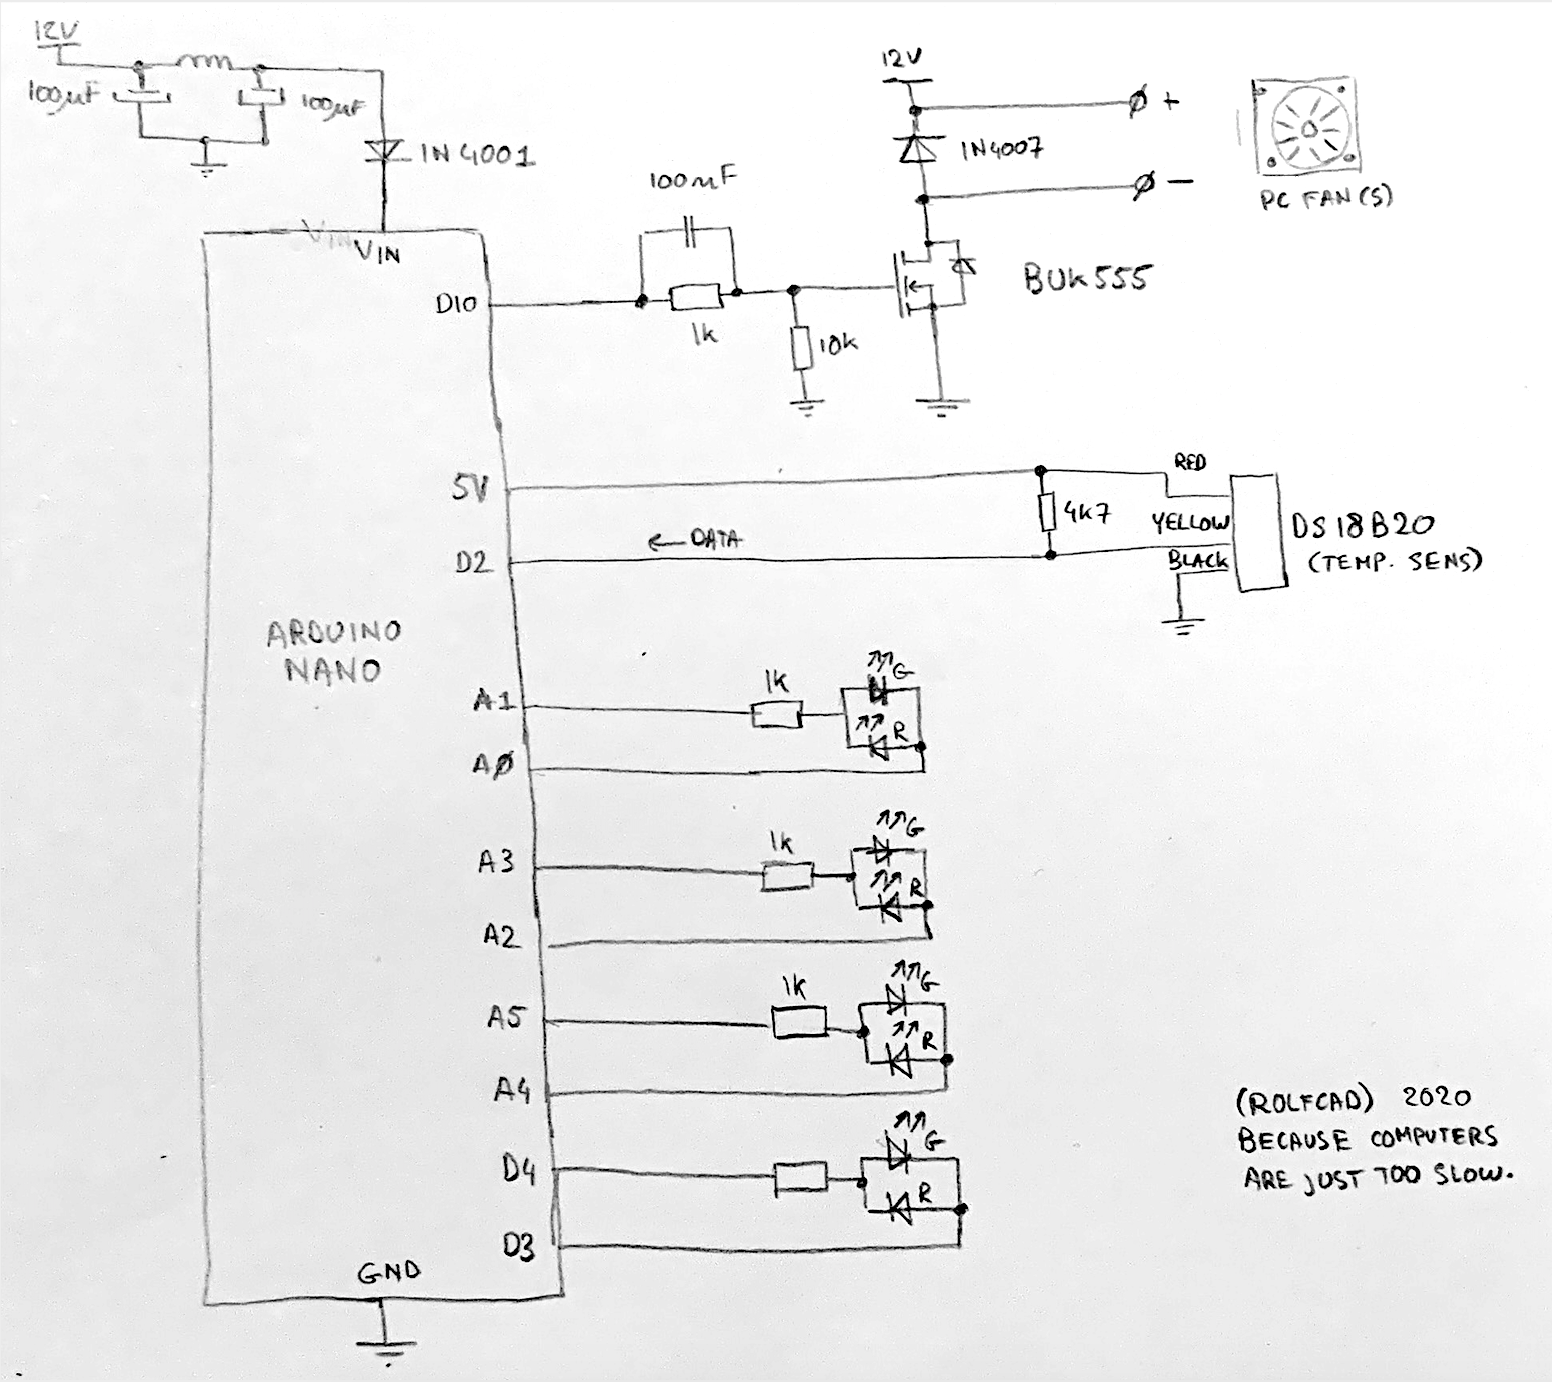 12V
100µF
100µF
IN4001
12V
+
IN4007
-
PC FAN(S)
100nF
1k
10k
BUK555
VIN
VIN
D10
5V
RED
4k7
YELLOW
DS18B20
← DATA
D2
BLACK
(TEMP. SENS)
ARDUINO
NANO
A1
1k
G
R
AØ
A3
1k
G
R
A2
A5
1k
G
R
A4
D4
G
R
D3
GND
(ROLFCAD) 2020
BECAUSE COMPUTERS
ARE JUST TOO SLOW.